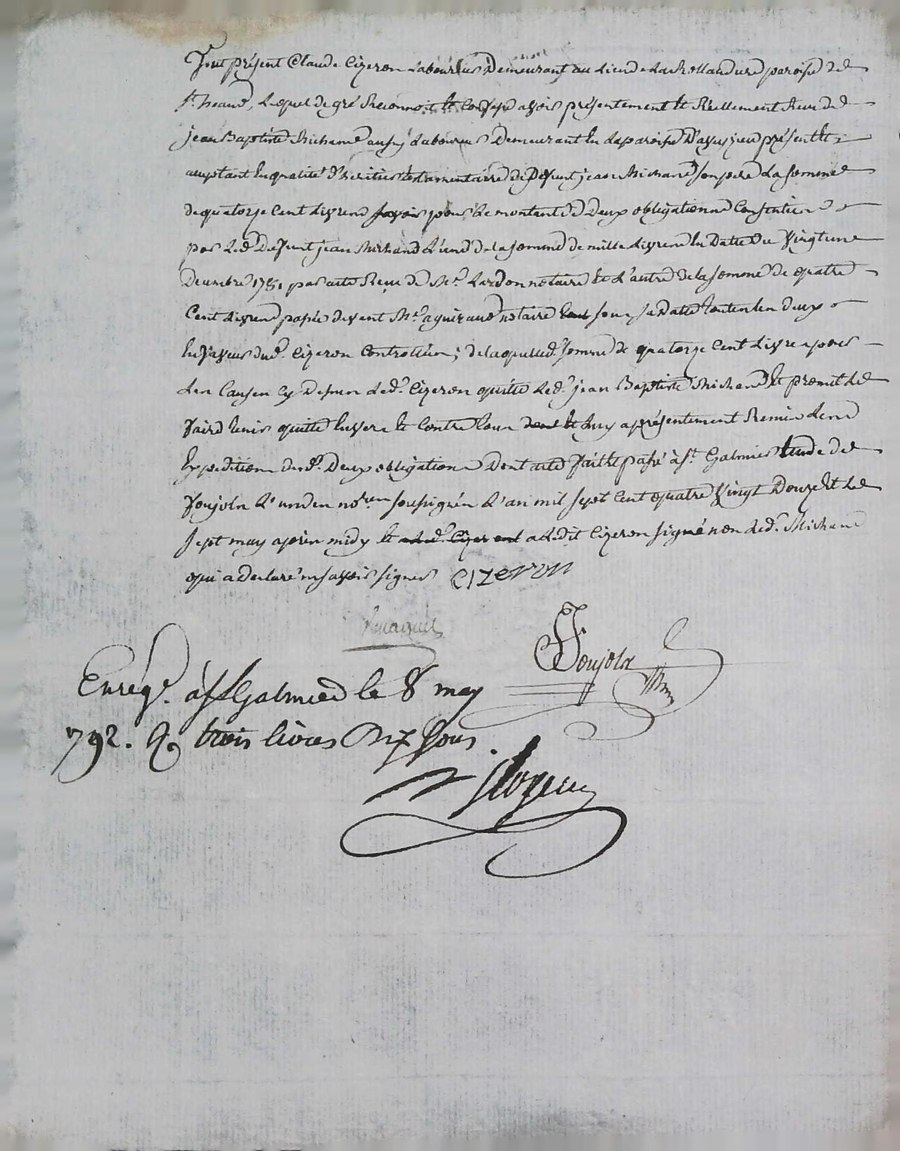 Fut présent Claude Cizeron Laboureur Demeurant au Lieu de La Rollandiere paroise de
St. heand, Lequel de gré Reconnoit et Confesse avoir présentement et Réellement Reçu de
jean Baptiste Michand aussy Laboureur Demeurant en La paroise D'aveyzieu présent et
aceptant En qualité D'héritier testamentaire de Defunt jean Michand son pere La somme
de quatorze Cent Livres savoir pour Le montant de Deux obligations Consenties
par Led. Defunt jean Michand L'une de La somme de mille Livres En Date du Vingt une
Decembre 1781 par acte Reçu de Me. Lardon notaire Et L'autre de La somme de quatre
Cent Livres passé devant Me. aguiraud notaire sous sa Date toutes les deux
En faveur dud. Cizeron Controllées; de Laquelle somme de quatorze Cent Livres pour
Les Causes Cy Dessus Led. Cizeron quitte Led. jean Baptiste Michand Et promet Le
faire tenir quitte Envers Et Contre tous Et Luy a présentement Remis Les
Expeditions desd. Deux obligations Dont acte fait Et passé à St. Galmier Etude de
Foujols L'un des nores. soussignés L'an mil sept Cent quatre Vingt Douze Et Le
sept may après midy Et a Ledit Cizeron signé non Led. Michand
qui a declaré ne savoir signer Cizeron
Foujols
Enrégé. à St Galmier le 8 may
792. R. trois livres Dix sous.